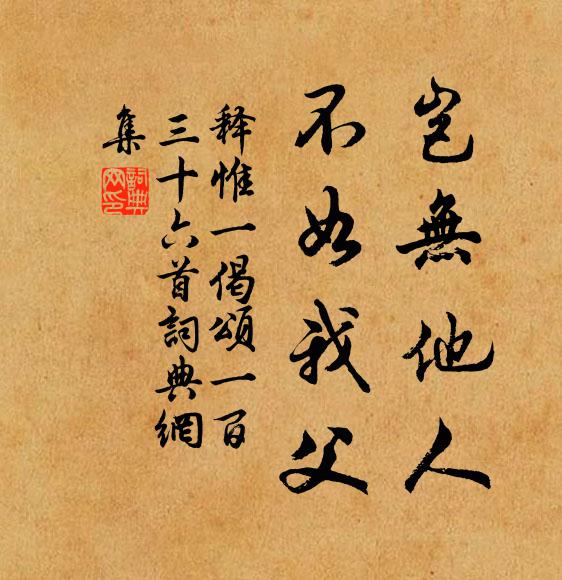 豈無他人
不如我父
释惟一偈頌一百
三十六首詞典網
集
詞典
网印